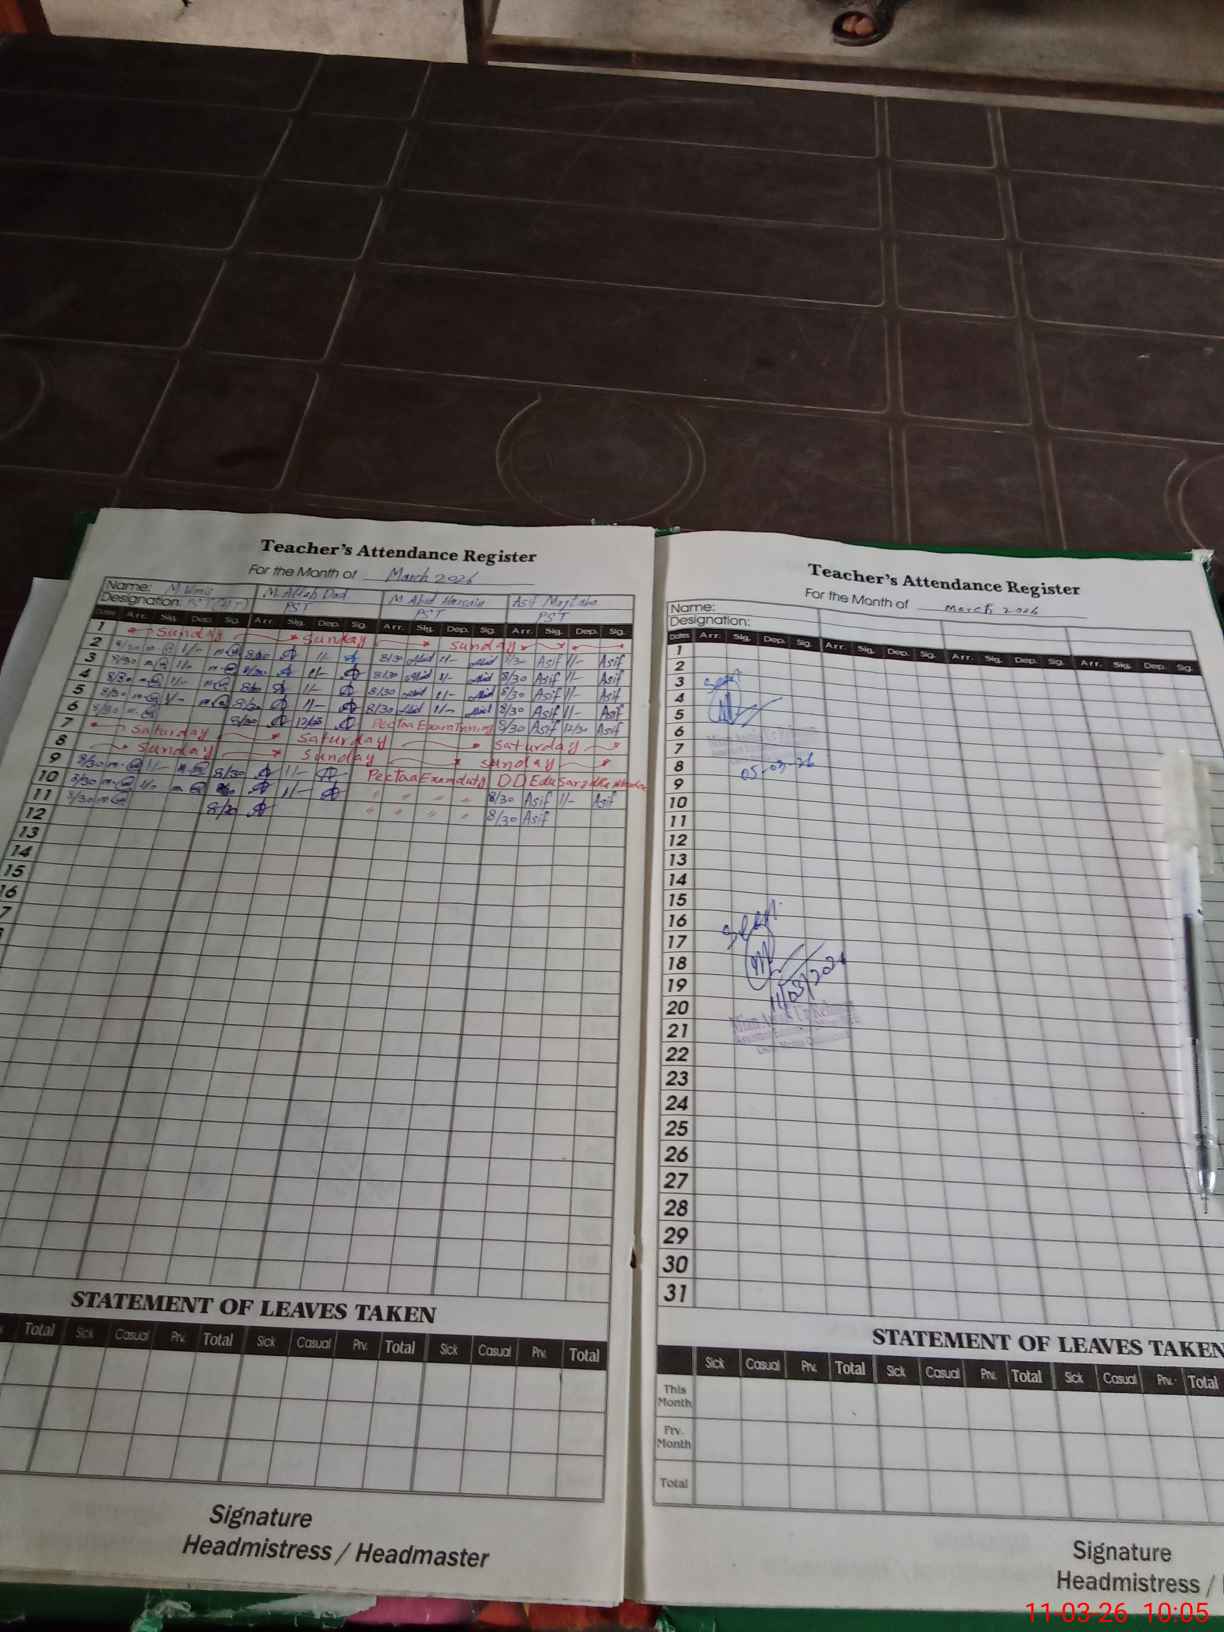 Teacher's Attendance Register
For the Month of March 2026
Name: M. Aftab Dad M Abid Hussain Asif Mujtaba
Designation: PST PST PST PST
Dates Arr. Sig. Dep. Sig. Arr. Sig. Dep. Sig. Arr. Sig. Dep. Sig. Arr. Sig. Dep. Sig.
1 Sunday Sunday Sunday
2 8/30 1/- 8/30 1/- 8/30 Abid 1/- Abid 8/30 Asif 1/- Asif
3 8/30 1/- 8/30 1/- 8/30 Abid 1/- Abid 8/30 Asif 1/- Asif
4 8/30 1/- 8/30 1/- 8/30 Abid 1/- Abid 8/30 Asif 1/- Asif
5 8/30 1/- 8/30 1/- 8/30 Abid 1/- Abid 8/30 Asif 1/- Asif
6 8/30 8/30 12/30 Pectaa Exam Training 8/30 Asif 12/30 Asif
7 Saturday Saturday Saturday
8 Sunday Sunday Sunday
9 8/30 1/- 8/30 1/- Pectaa Exam duty D D Edu
10 8/30 1/- 1/- " " " " 8/30 Asif 1/- Asif
11 8/30 8/30 " " " " 8/30 Asif
12
13
14
15
16
7
STATEMENT OF LEAVES TAKEN
Total Sick Casual Prv. Total Sick Casual Prv. Total Sick Casual Prv. Total
Signature
Headmistress / Headmaster
Teacher's Attendance Register
For the Month of March 2026
Name:
Designation:
Dates Arr. Sig. Dep. Sig. Arr. Sig. Dep. Sig. Arr. Sig. Dep. Sig. Arr. Sig. Dep. Sig.
1
2
3 Seen
4
5
6
7
8 05-03-26
9
10
11
12
13
14
15
16 Seen
17
18
19 11/03/2026
20
21
22
23
24
25
26
27
28
29
30
31
STATEMENT OF LEAVES TAKEN
Sick Casual Prv. Total Sick Casual Prv. Total Sick Casual Prv. Total
This Month
Prv. Month
Total
Signature
Headmistress /
11-03-26 10:05